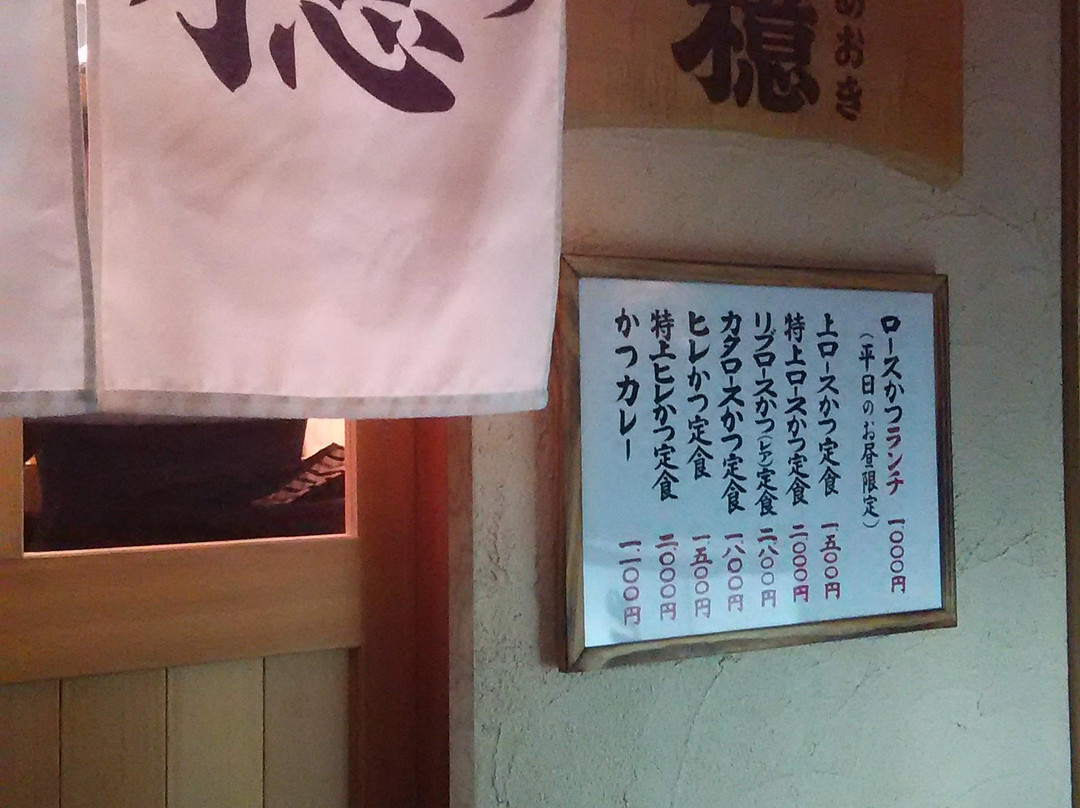 檍
のおき
ロースかつランチ 一、〇〇〇円
(平日のお昼限定)
上ロースかつ定食 一、五〇〇円
特上ロースかつ定食 二、〇〇〇円
リブロースかつ(ヒレ)定食 二、八〇〇円
カタロースかつ定食 一、八〇〇円
ヒレかつ定食 一、五〇〇円
特上ヒレかつ定食 二、〇〇〇円
かつカレー 一、一〇〇円